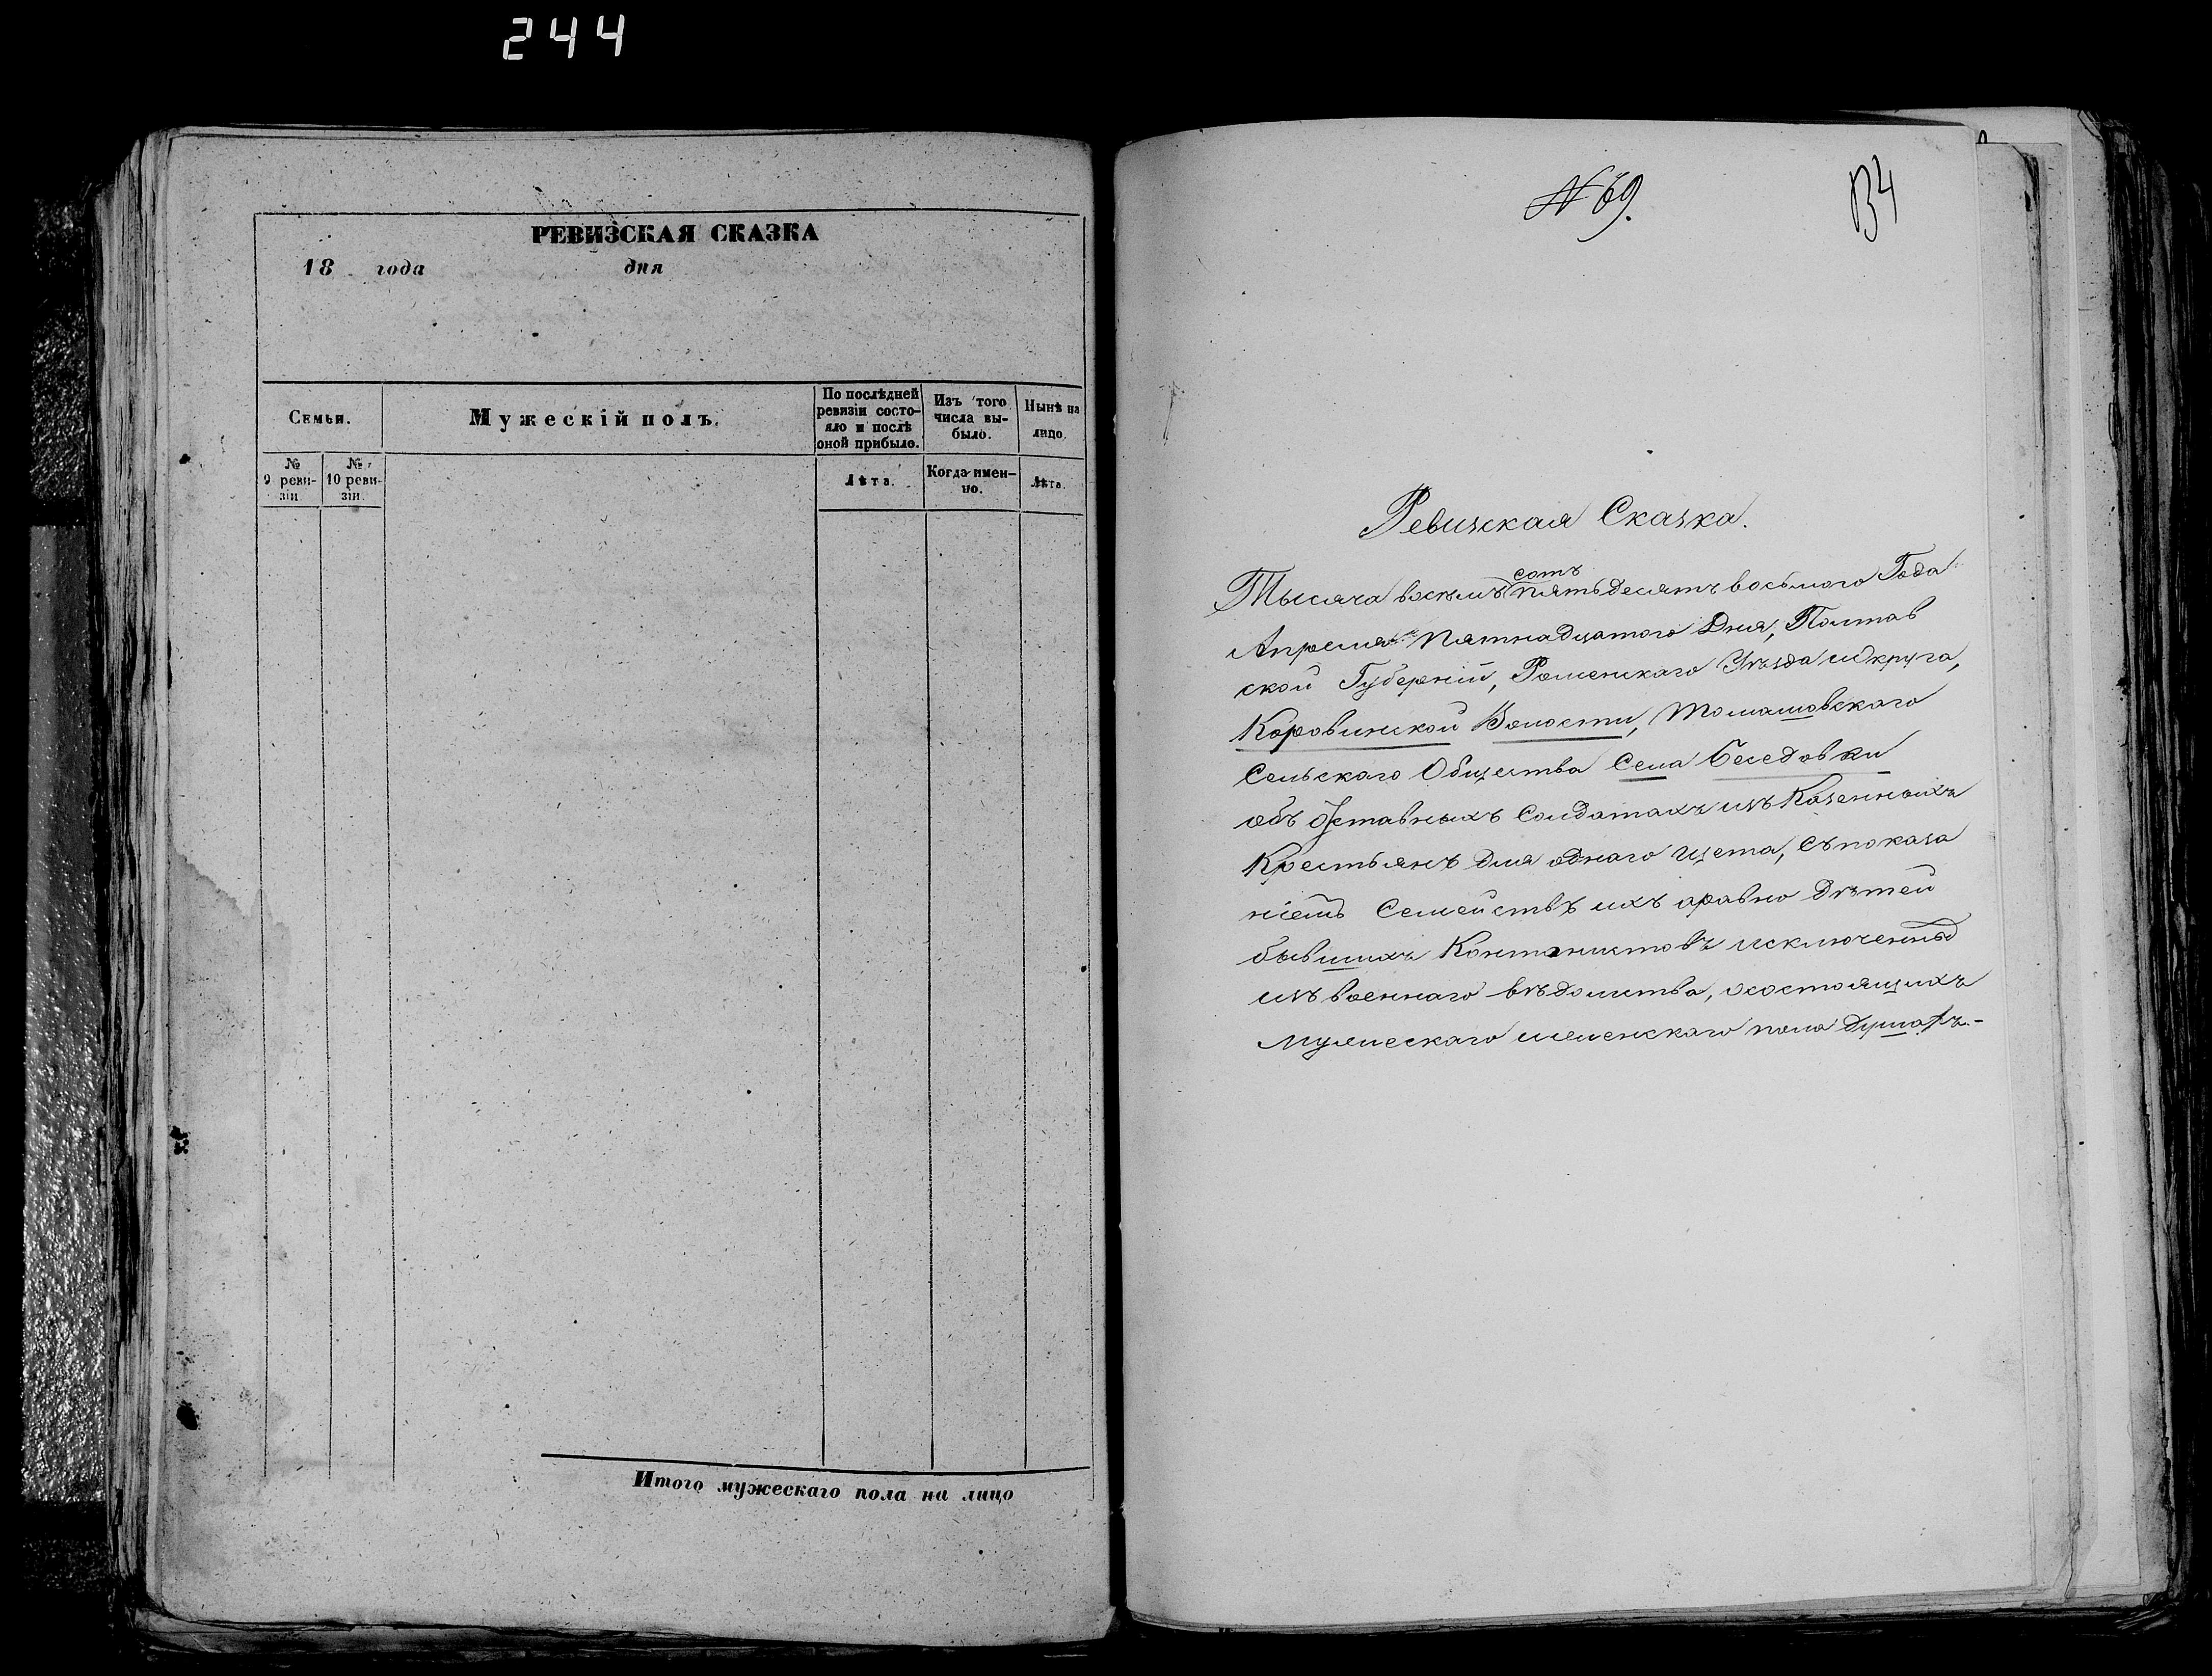 244
РЕВИЗСКАЯ СКАЗКА
18 года дня
Семьи.
Мужескій полъ.
По послѣдней
ревизіи состо-
яло и послѣ
оной прибыло.
Изъ того
числа вы-
было.
Нынѣ на
лицо.
№
9 реви-
зіи
№
10 реви-
зіи.
Лѣта.
Когда имен-
но.
Лѣта.
Итого мужескаго пола на лицо
№ 69.
134
Ревизская Сказка.
сотъ
Тысяча восемъ пятьдесятъ восьмого Года
Апреля пятнадцатого Дня, Полтав
ской Губерніи, Роменскаго Уѣзда и округа,
Коровинской Волости, Томашовскаго
Сельскаго Общества Села Беседовки
объ отставныхъ Солдатахъ изъ Казенныхъ
Крестьянъ для однаго щета, съ показа
ніемъ Семействъ ихъ а равно дѣтей
бывшихъ Кантонистовъ исключенны
изъ военнаго вѣдомства, о состоящихъ
мужескаго и женскаго пола душахъ.-